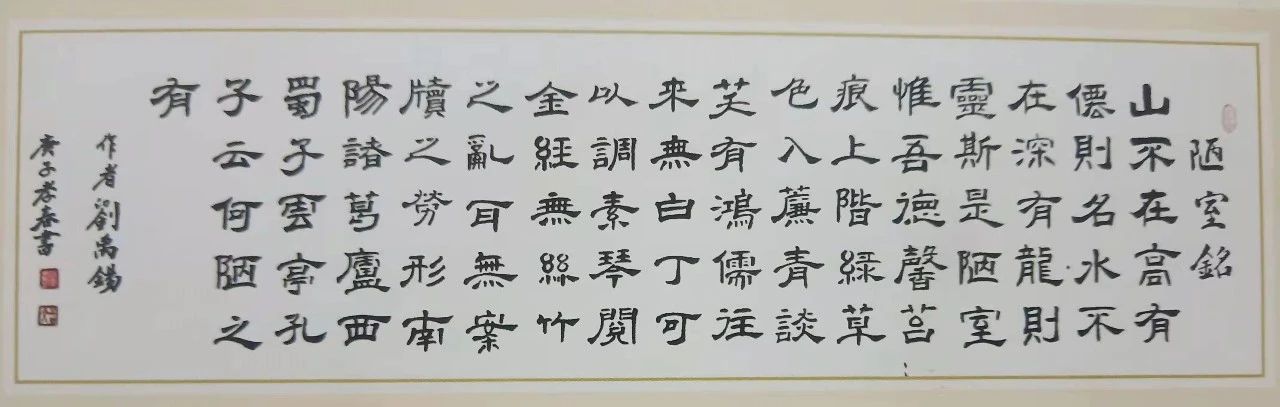 陋室銘
山不在高有
僊則名水不
在深有龍則
靈斯是陋室
惟吾德馨苔
痕上階緑草
色入簾青談
笑有鴻儒往
来無白丁可
以調素琴閱
金経無絲竹
之亂耳無案
牘之勞形南
陽諸葛廬西
蜀子雲亭孔
子云何陋之
有
作者劉禹錫
庚子孝春書